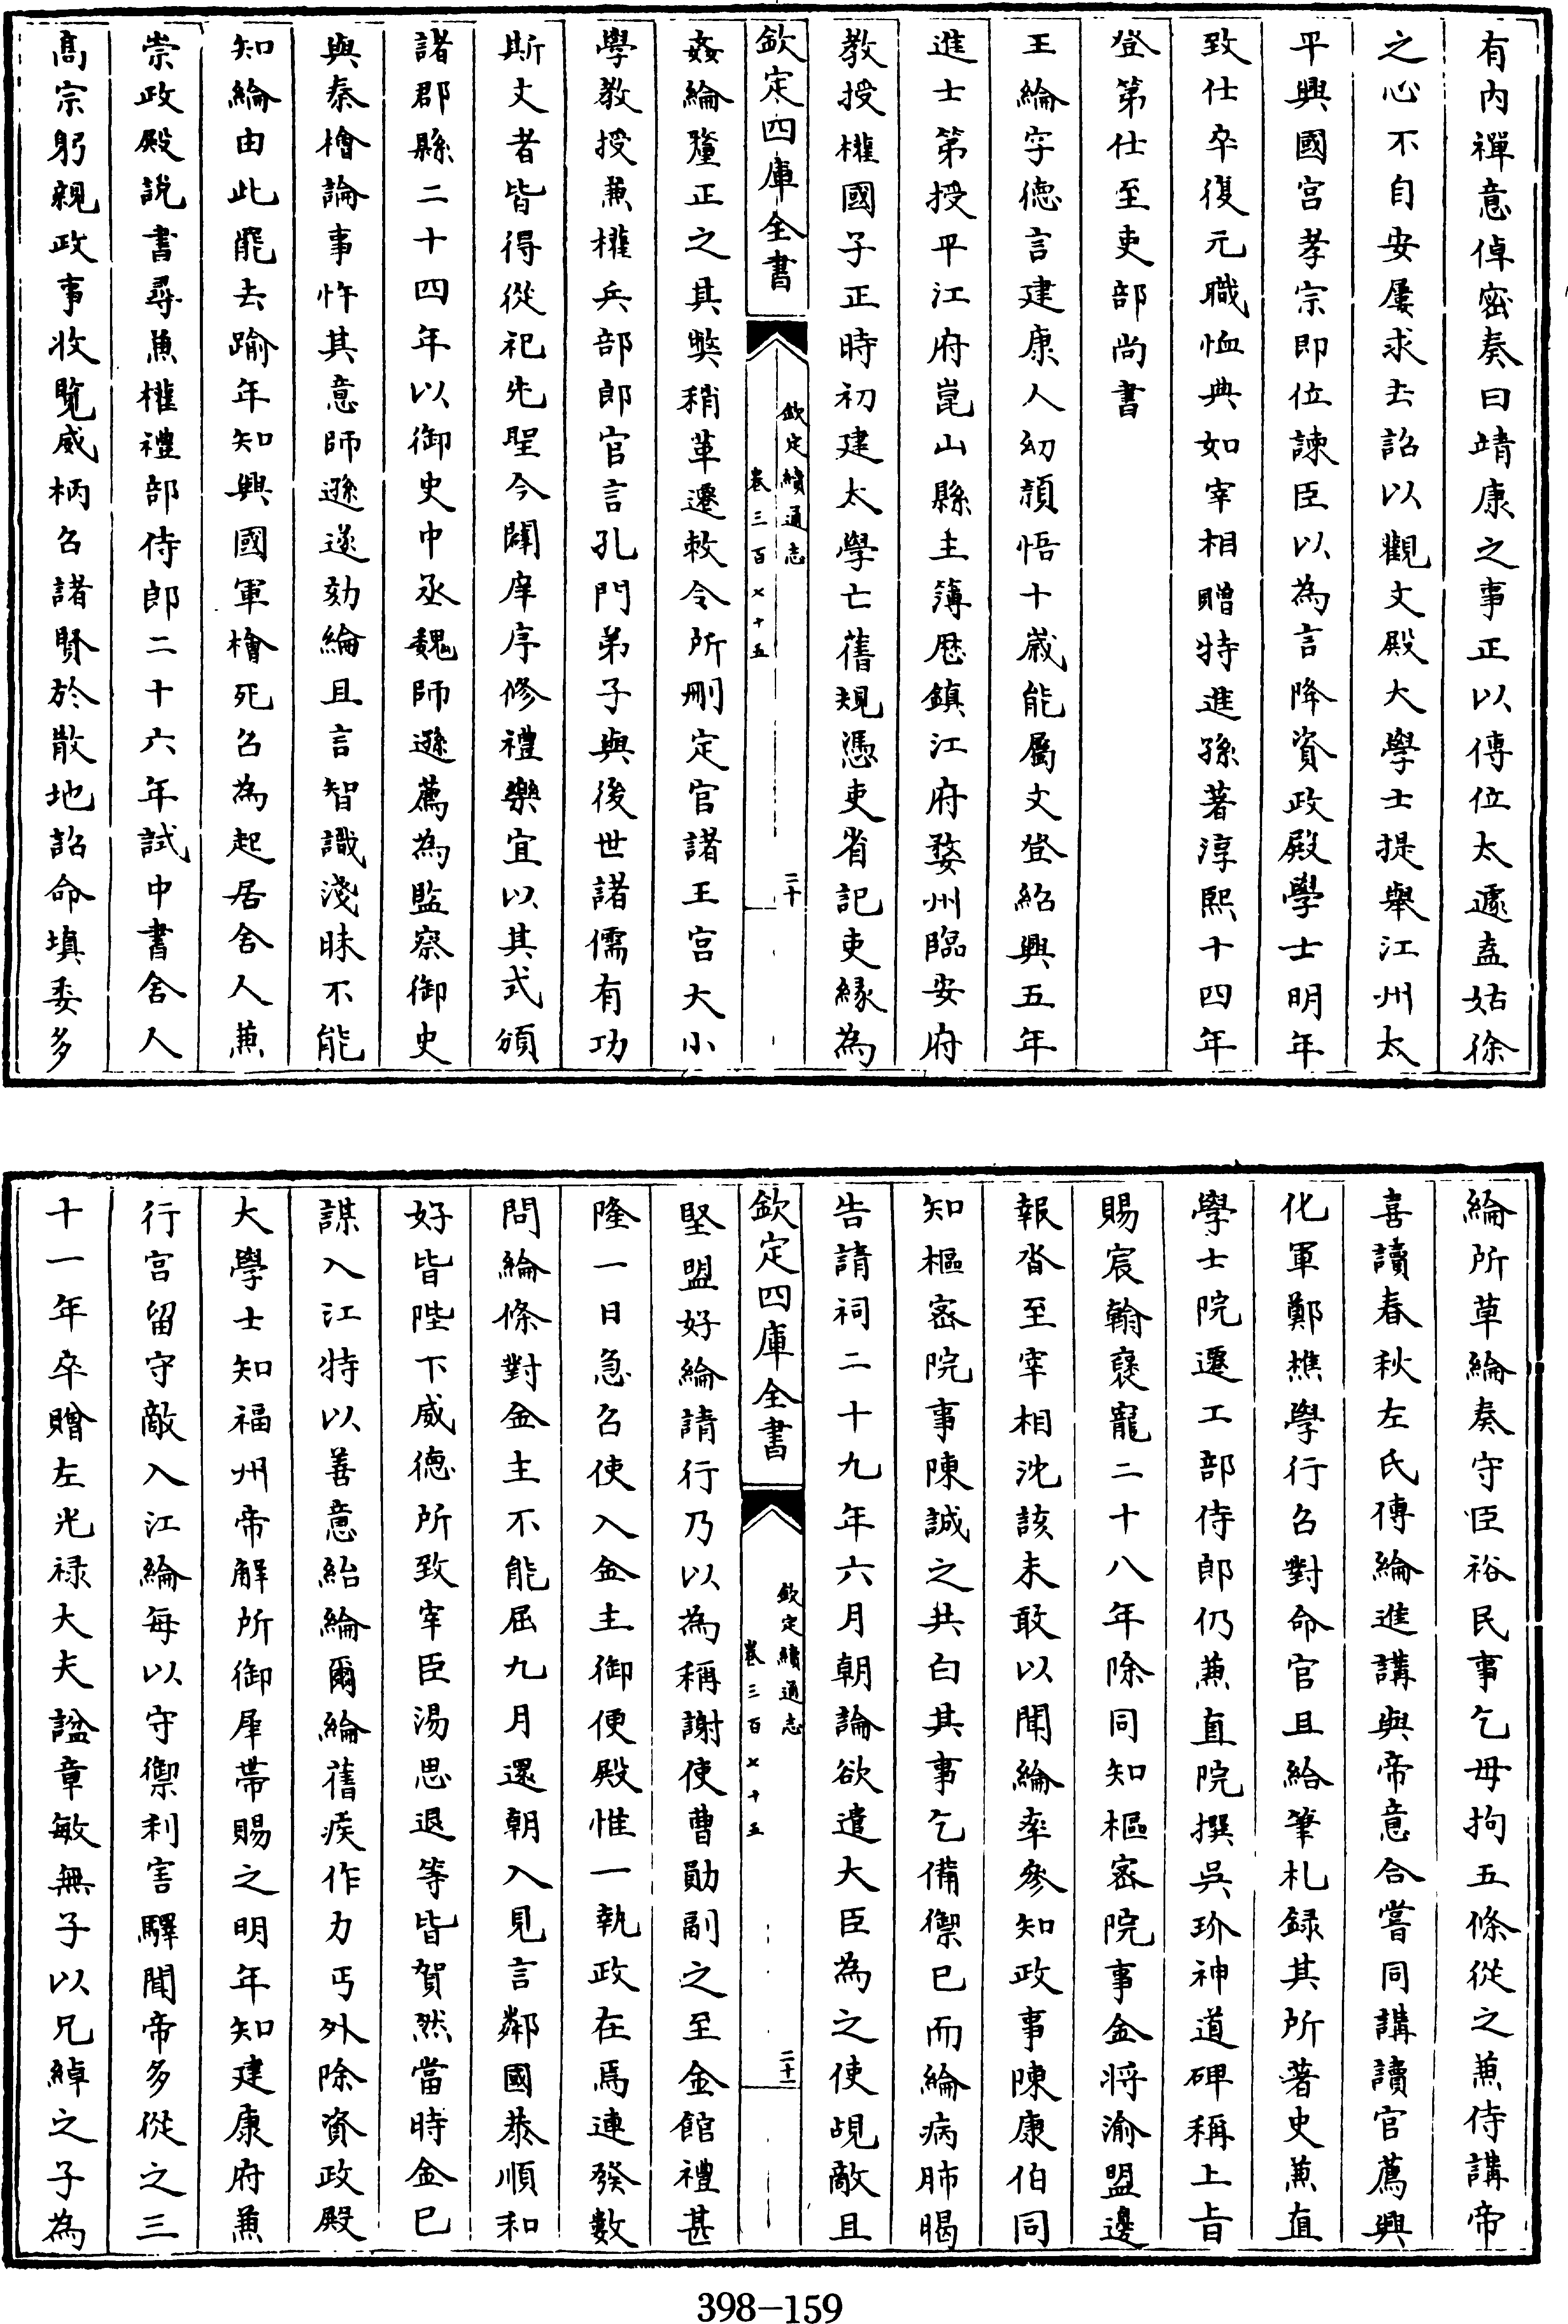 有內禪意倬密奏曰靖康之事正以傳位太遽盍姑徐
之心不自安屢求去詔以觀文殿大學士提舉江州太
平興國宮孝宗即位諫臣以為言降資政殿學士明年
致仕卒復元職恤典如宰相贈特進孫著淳熙十四年
登第仕至吏部尚書
王綸字德言建康人幼穎悟十歲能屬文登紹興五年
進士第授平江府崑山縣主簿歷鎮江府婺州臨安府
教授權國子正時初建太學亡舊規憑吏省記吏緣為
欽定四庫全書
欽定續通志
卷三百七十五
二十
姦綸釐正之其獘稍革遷敕令所刪定官諸王宮大小
學教授兼權兵部郎官言孔門弟子與後世諸儒有功
斯文者皆得從祀先聖今闢庠序修禮樂宜以其式頒
諸郡縣二十四年以御史中丞魏師遜薦為監察御史
與秦檜論事忤其意師遜遂劾綸且言智識淺昧不能
知綸由此罷去踰年知興國軍檜死召為起居舍人兼
崇政殿說書尋兼權禮部侍郎二十六年試中書舍人
高宗躬親政事收覽威柄召諸賢於散地詔命填委多
綸所草綸奏守臣裕民事乞毋拘五條從之兼侍講帝
喜讀春秋左氏傳綸進講與帝意合嘗同講讀官薦興
化軍鄭樵學行召對命官且給筆札録其所著史兼直
學士院遷工部侍郎仍兼直院撰吳玠神道碑稱上旨
賜宸翰褒寵二十八年除同知樞密院事金將渝盟邊
報沓至宰相沈該未敢以聞綸率參知政事陳康伯同
知樞密院事陳誠之共白其事乞備禦已而綸病肺暍
告請祠二十九年六月朝論欲遣大臣為之使覘敵且
欽定四庫全書
欽定續通志
卷三百七十五
二十一
堅盟好綸請行乃以為稱謝使曹勛副之至金館禮甚
隆一日急召使入金主御便殿惟一執政在焉連發數
問綸條對金主不能屈九月還朝入見言鄰國恭順和
好皆陛下威德所致宰臣湯思退等皆賀然當時金已
謀入江特以善意紿綸爾綸舊疾作力丐外除資政殿
大學士知福州帝解所御犀帶賜之明年知建康府兼
行宮留守敵入江綸每以守禦利害驛聞帝多從之三
十一年卒贈左光祿大夫諡章敏無子以兄綽之子為
398-159